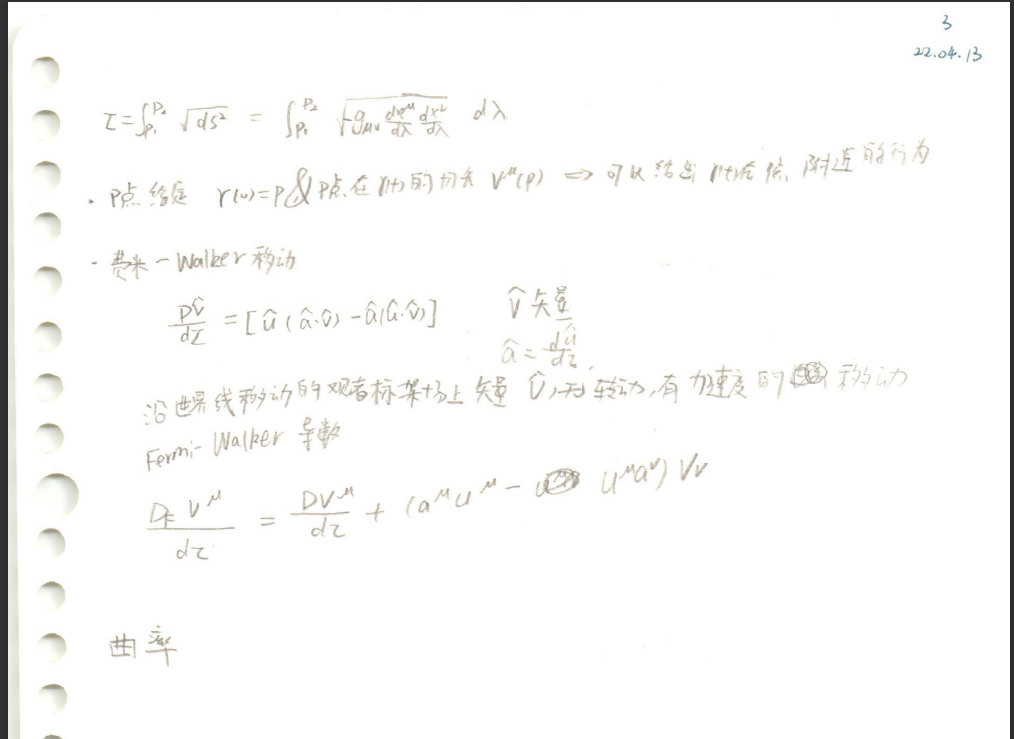 3
22.04.13
τ = ∫_{P₁}^{P₂} √ds² = ∫_{P₁}^{P₂} √(-g_{μν} dx^μ/dλ dx^ν/dλ) dλ
· P点给定 γ(0)=P & P点在γ(t)的切矢 V^μ(P) ⇒ 可以给出γ(t)在 点 附近的行为
· 费米-Walker移动
DV̂/dτ = [û(â·v̂) - â(û·v̂)] V̂ 矢量
â = dû/dτ
沿世界线移动的观者标架场上矢量 V̂, 无转动, 有加速度的 移动
Fermi-Walker 导数
D_F V^μ/dτ = DV^μ/dτ + (a^μ u^μ - u^μ a^ν) V_ν
曲率